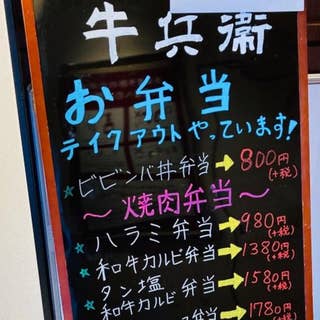 牛兵衛
お弁当
テイクアウトやっています!
★ビビンバ丼弁当→800円(+税)
～焼肉弁当～
★ハラミ弁当→980円(+税)
★和牛カルビ弁当→1380円(+税)
★タン塩弁当→1580円(+税)
和牛カルビ
1780円(+税)